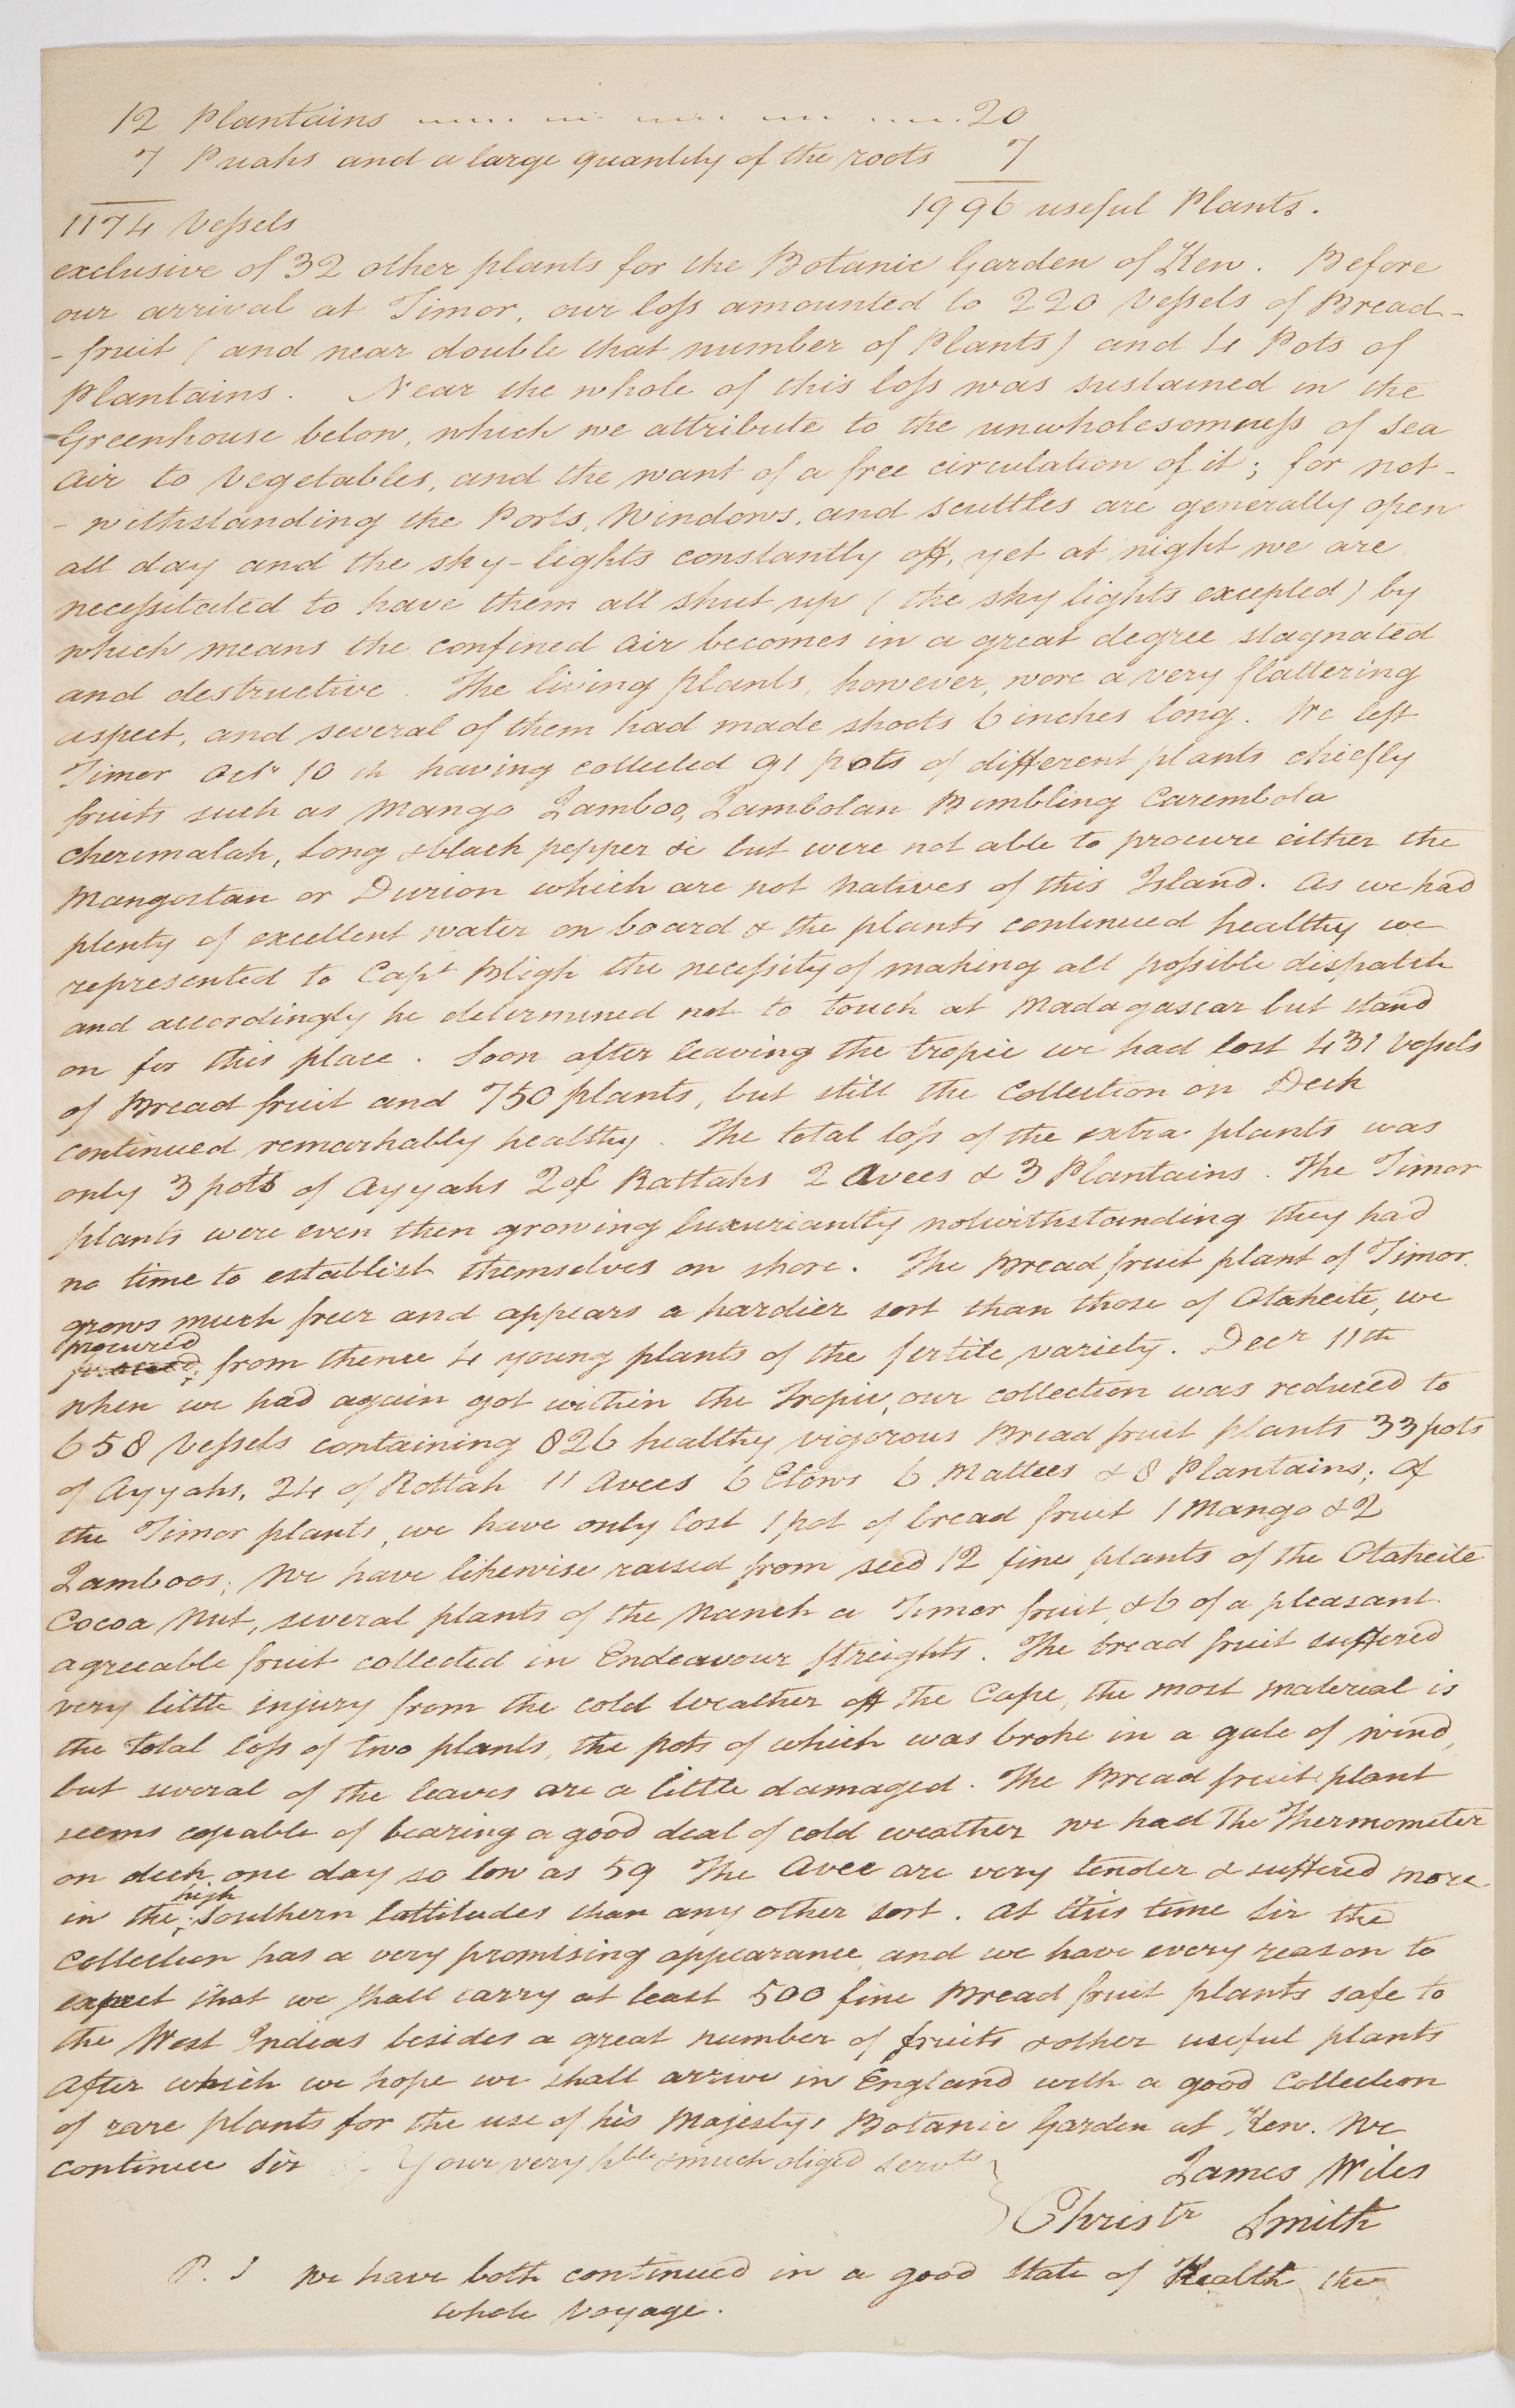 12 Plantains ..... ... .... ... .... 20
7 Puahs and a large quantity of the roots 7
1174 Vessels 1996 useful Plants.
exclusive of 32 other plants for the Botanic Garden of Kew. Before
our arrival at Timor, our loss amounted to 220 Vessels of Bread-
-fruit (and near double that number of Plants) and 4 Pots of
Plantains. Near the whole of this loss was sustained in the
Greenhouse below, which we attribute to the unwholesomness of sea
Air to Vegetables, and the want of a free circulation of it; for not-
- withstanding the Ports, Windows, and scuttles are generally open
all day and the sky-lights constantly off, yet at night we are
necessitated to have them all shut up (the sky lights excepted) by
which means the confined air becomes in a great degree stagnated
and destructive. The living Plants, however, wore a very flattering
aspect, and several of them had made shoots 6 inches long. We left
Timor Octr 10th having collected 91 pots of different plants chiefly
fruits such as Mango Jamboo, Jambolan Bimbling Carembola
Cherimalah, Long & black pepper &c but were not able to procure either the
Mangostan or Durion which are not Natives of this Island. As we had
plenty of excellent water on board & the plants continued healthy we
represented to Capt Bligh the necessity of making all possible dispatch
and accordingly he determined not to touch at Madagascar but stand
on for this place. Soon after leaving the tropic we had lost 431 Vessels
of Bread fruit and 750 plants, but still the Collection on Deck
continued remarkably healthy. The total loss of the extra plants was
only 3 pots of Ayyahs 2 of Rattahs 2 Avees & 3 Plantains. The Timor
plants were even then growing luxuriantly notwithstanding they had
no time to establish themselves on shore. The Bread fruit plant of Timor
grows much freer and appears a hardier sort than those of Otaheite, we
procured
from thence 4 young plants of the fertile variety. Decr 11th
when we had again got within the Tropic, our collection was reduced to
658 Vessels containing 826 healthy vigorous Bread fruit plants 33 pots
of Ayyahs, 24 of Rottah 11 Avees 6 Etows 6 Mattees & 8 Plantains; Of
the Timor plants, we have only lost 1 pot of bread fruit 1 Mango & 2
Jamboos; We have likewise raised from seed 12 fine plants of the Otaheite
Cocoa Nut, several plants of the Nanch a Timor fruit, & 6 of a pleasant
agreeable fruit collected in Endeavour streights. The bread fruit suffered
very little injury from the cold weather off the Cape, the most material is
the total loss of two plants, the pots of which was broke in a gale of wind,
but several of the leaves are a little damaged. The Bread fruit plant
seems capable of bearing a good deal of cold weather we had The Thermometer
on deck one day so low as 59 The Avee are very tender & suffered more
high
in the southern lattitudes than any other sort. At this time Sir the
Collection has a very promising appearance, and we have every reason to
expect that we shall carry at least 500 fine Bread fruit plants safe to
the West Indias besides a great number of fruits & other useful plants
After which we hope we shall arrive in England with a good Collection
of rare plants for the use of his Majestys Botanic Garden at Kew. We
continue Sir Your very hble & much oliged servts
James Wiles
Christr Smith
P. S We have both continued in a good State of Health the
whole Voyage.